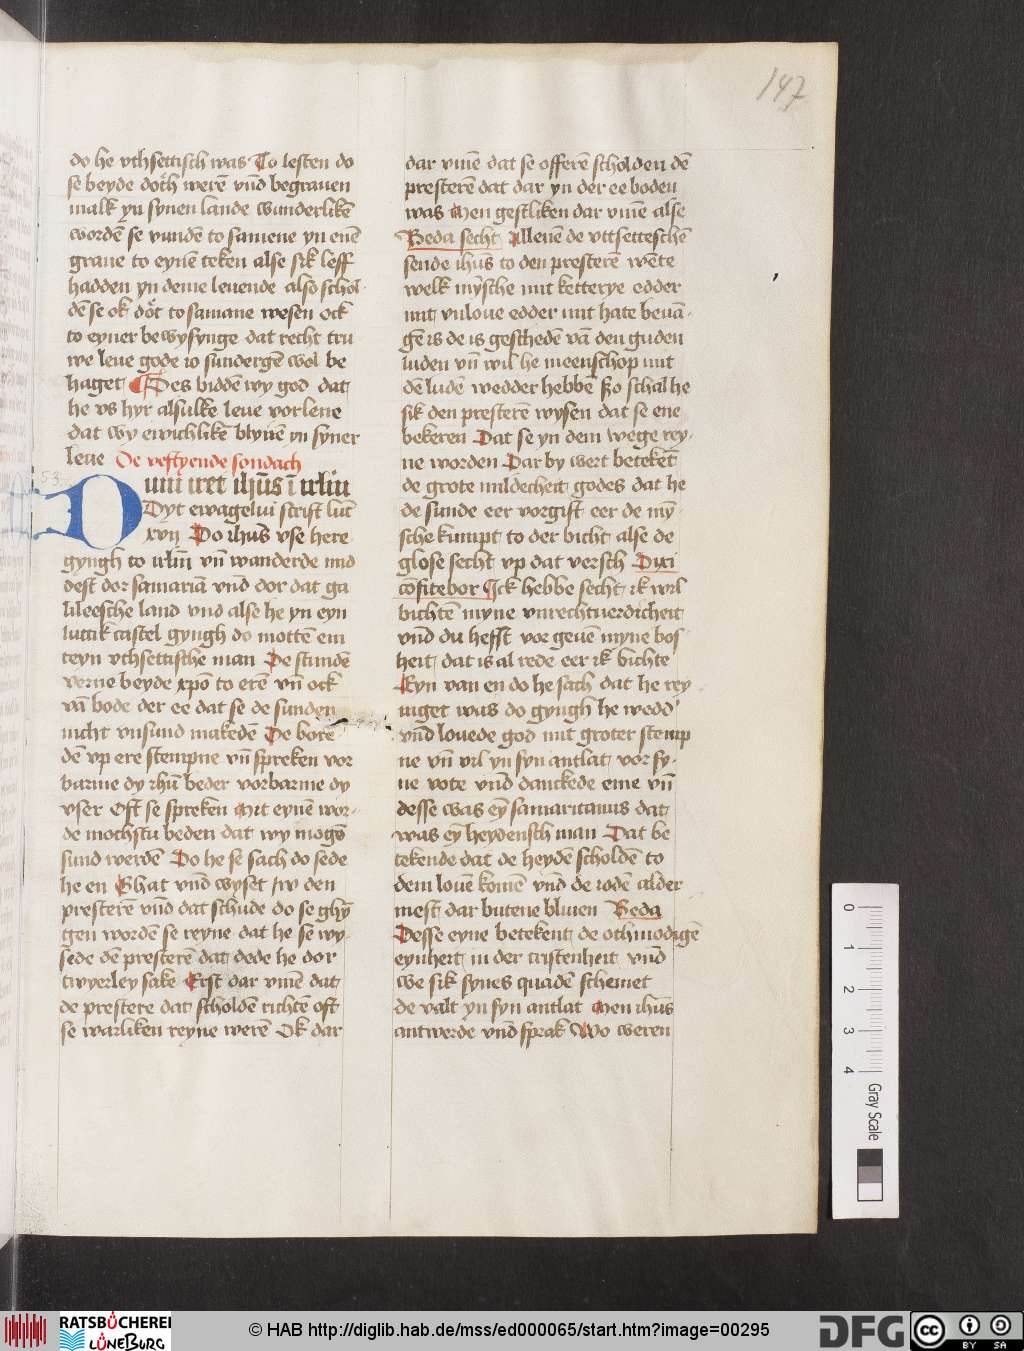 147
do he vthsettisch was To lesten do
se beyde doth werē vnd begrauen
malk yn synen lande wunderlikē
wordēn se vunden to samene yn enē
graue to eynē teken alse sik leff
hadden yn deme leuende also schol-
dē se ok dot to samane wesen ock
to eyner bewysynge dat recht tru
we leue gode io sundergē wol be
haget Des biddē wy god dat
he vs hyr alsulke leue vorlene
dat wy ewichlikē blyuē yn syner
leue De vestyende sondach
53
Dum iret ihūs ī irlm
Dyt ewāgelui scrift luc
xvij Do ihūs vse here
gyngh to irlm vn̄ wanderde mid
dest dor samariā vnd dor dat ga
lileesche land vnd alse he yn eyn
luttik castel gyngh do mottē em
teyn vthsettische man De stundē
verne beyde xpō to erē vn̄ ock
vā bode der ee dat se de sunden
nicht vnsund makedē De bore
dē vp ere stempne vn̄ spreken vor
barme dy ihū beder vorbarme dy
vser Oft se spreken Mit eynē wor-
de mochstu beden dat wy mogē
sund werdē Do he se sach do sede
he en Ghat vnd wyset iw den
presterē vnd dat schude do se ghȳ
gen wordē se reyne dat he se wy-
sede dē presterē dat dede he dor
twyerley sake Erst dar vmē dat
de prestere dat scholdē richtē oft
se warliken reyne werē Ok dar
dar vmē dat se offerē scholden dē
presterē dat dar yn der ee boden
was Men gestliken dar vmē alse
Beda secht Alleuē de vttsetteschē
sende ihūs to den presterē wēte
welk mȳsche mit ketterye edder
mit vnloue edder mit hate beuā-
gē is de is geschedē vā den guden
luden vn̄ wil he meenschop mit
dē ludē wedder hebbē so schal he
sik den presterē wysen dat se ene
bekeren Dat se yn dem wege rey-
ne worden Dar by wert beteket
de grote mildecheit godes dat he
de sunde eer vorgift eer de mȳ
sche kumpt to der bicht alse de
glose secht vp dat versch Dixi
cōfitebor Ick hebbe secht ik wil
bichtē myne vnrechtuerdicheit
vnd du hefst vor geuē myne bos-
heit dat is al rede eer ik bichte
Eyn van en do he sach dat he rey
niget was do gyngh he wedd'
vnd louede god mit groter stemp
ne vn̄ vil yn syn antlat vor sy-
ne vote vnd danckede eme vn̄
desse was eȳ samaritanus dat
was eȳ heydensch man Dat be
tekende dat de heydē scholdē to
dem louē komē vnd de iodē alder
mest dar butene bliuen Beda
Desse eyne betekent de othmodigē
eynheit in der cristenheit vnd
we sik synes quadē schemet
de valt yn syn antlat Men ihūs
antwerde vnd sprak Wo weren
0
1
2
3
4
Gray Scale
RATSBÜCHEREI
LÜNEBURG
© HAB http://diglib.hab.de/mss/ed000065/start.htm?image=00295
DFG
cc
BY SA